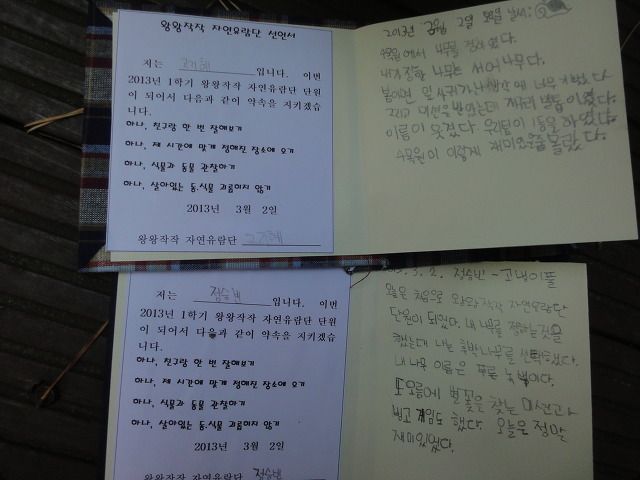 왕왕작작 자연유람단 선언서
저는 고기혜 입니다. 이번
2013년 1학기 왕왕작작 자연유람단 단원
이 되어서 다음과 같이 약속을 지키겠습
니다.
하나, 친구랑 한 번 잘해보기
하나, 제 시간에 맞게 정해진 장소에 오기
하나, 식물과 동물 관찰하기
하나, 살아있는 동.식물 괴롭히지 않기
2013년 3월 2일
왕왕작작 자연유람단 고기혜
2013년 3월 2일 토요일 날씨:
수목원에서 나무를 정하였다.
내가 정한 나무는 서어나무다.
봄에만 잎 싸귀가 나
그리고 미션을 받았는데
이름이 웃겼다. 우리팀이 1등을 하였다.
수목원이 이렇게 재미있는줄 몰랐다.
저는 정승빈 입니다. 이번
2013년 1학기 왕왕작작 자연유람단 단원
이 되어서 다음과 같이 약속을 지키겠습
니다.
하나, 친구랑 한 번 잘해보기
하나, 제 시간에 맞게 정해진 장소에 오기
하나, 식물과 동물 관찰하기
하나, 살아있는 동.식물 괴롭히지 않기
2013년 3월 2일
왕왕작작 자연유람단 정승빈
3. 2. 정승빈 - 고냉이풀
오늘은 처음으로 왕왕작작 자연유람단
단원이 되었다. 내 나무를 정하는것을
했는데 나는 후박나무를 선택했다.
내 나무 이름은 푸른 녹백이다.
또 오름에 별꽃을 찾는 미션과
빙고 게임도 했다. 오늘은 정말
재미있었다.